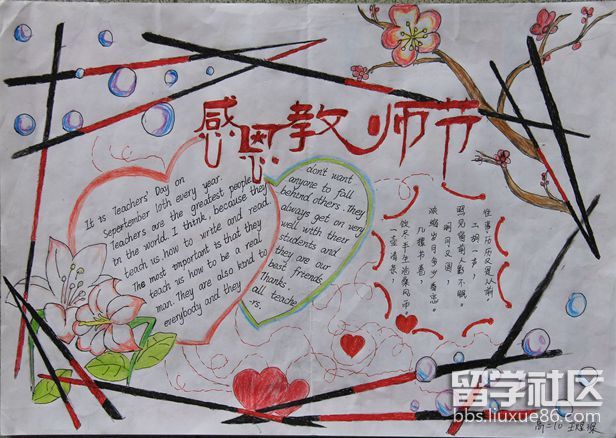 感恩教师节
It is Teachers' Day on
Seperternber 10th every year.
Teachers are the greatest people
in the world. I think, because they
teach us how to write and read.
The most important is that they
teach us how to be a real
man. They are also kind to
everybody and they
don't want
anyone to fall
behind others. They
always get on very
well with their
students and
they are our
best friends.
Thanks
all teache
-rs.
往事历历又返从前，
二胡一声，
明月又圆。
影不眠。
浓缩岁月多少香茗，
几摞书卷，
饮尽半生沧桑风雨，
一壶清茶！
高二10 王
留学社区
bbs.liuxue86.com